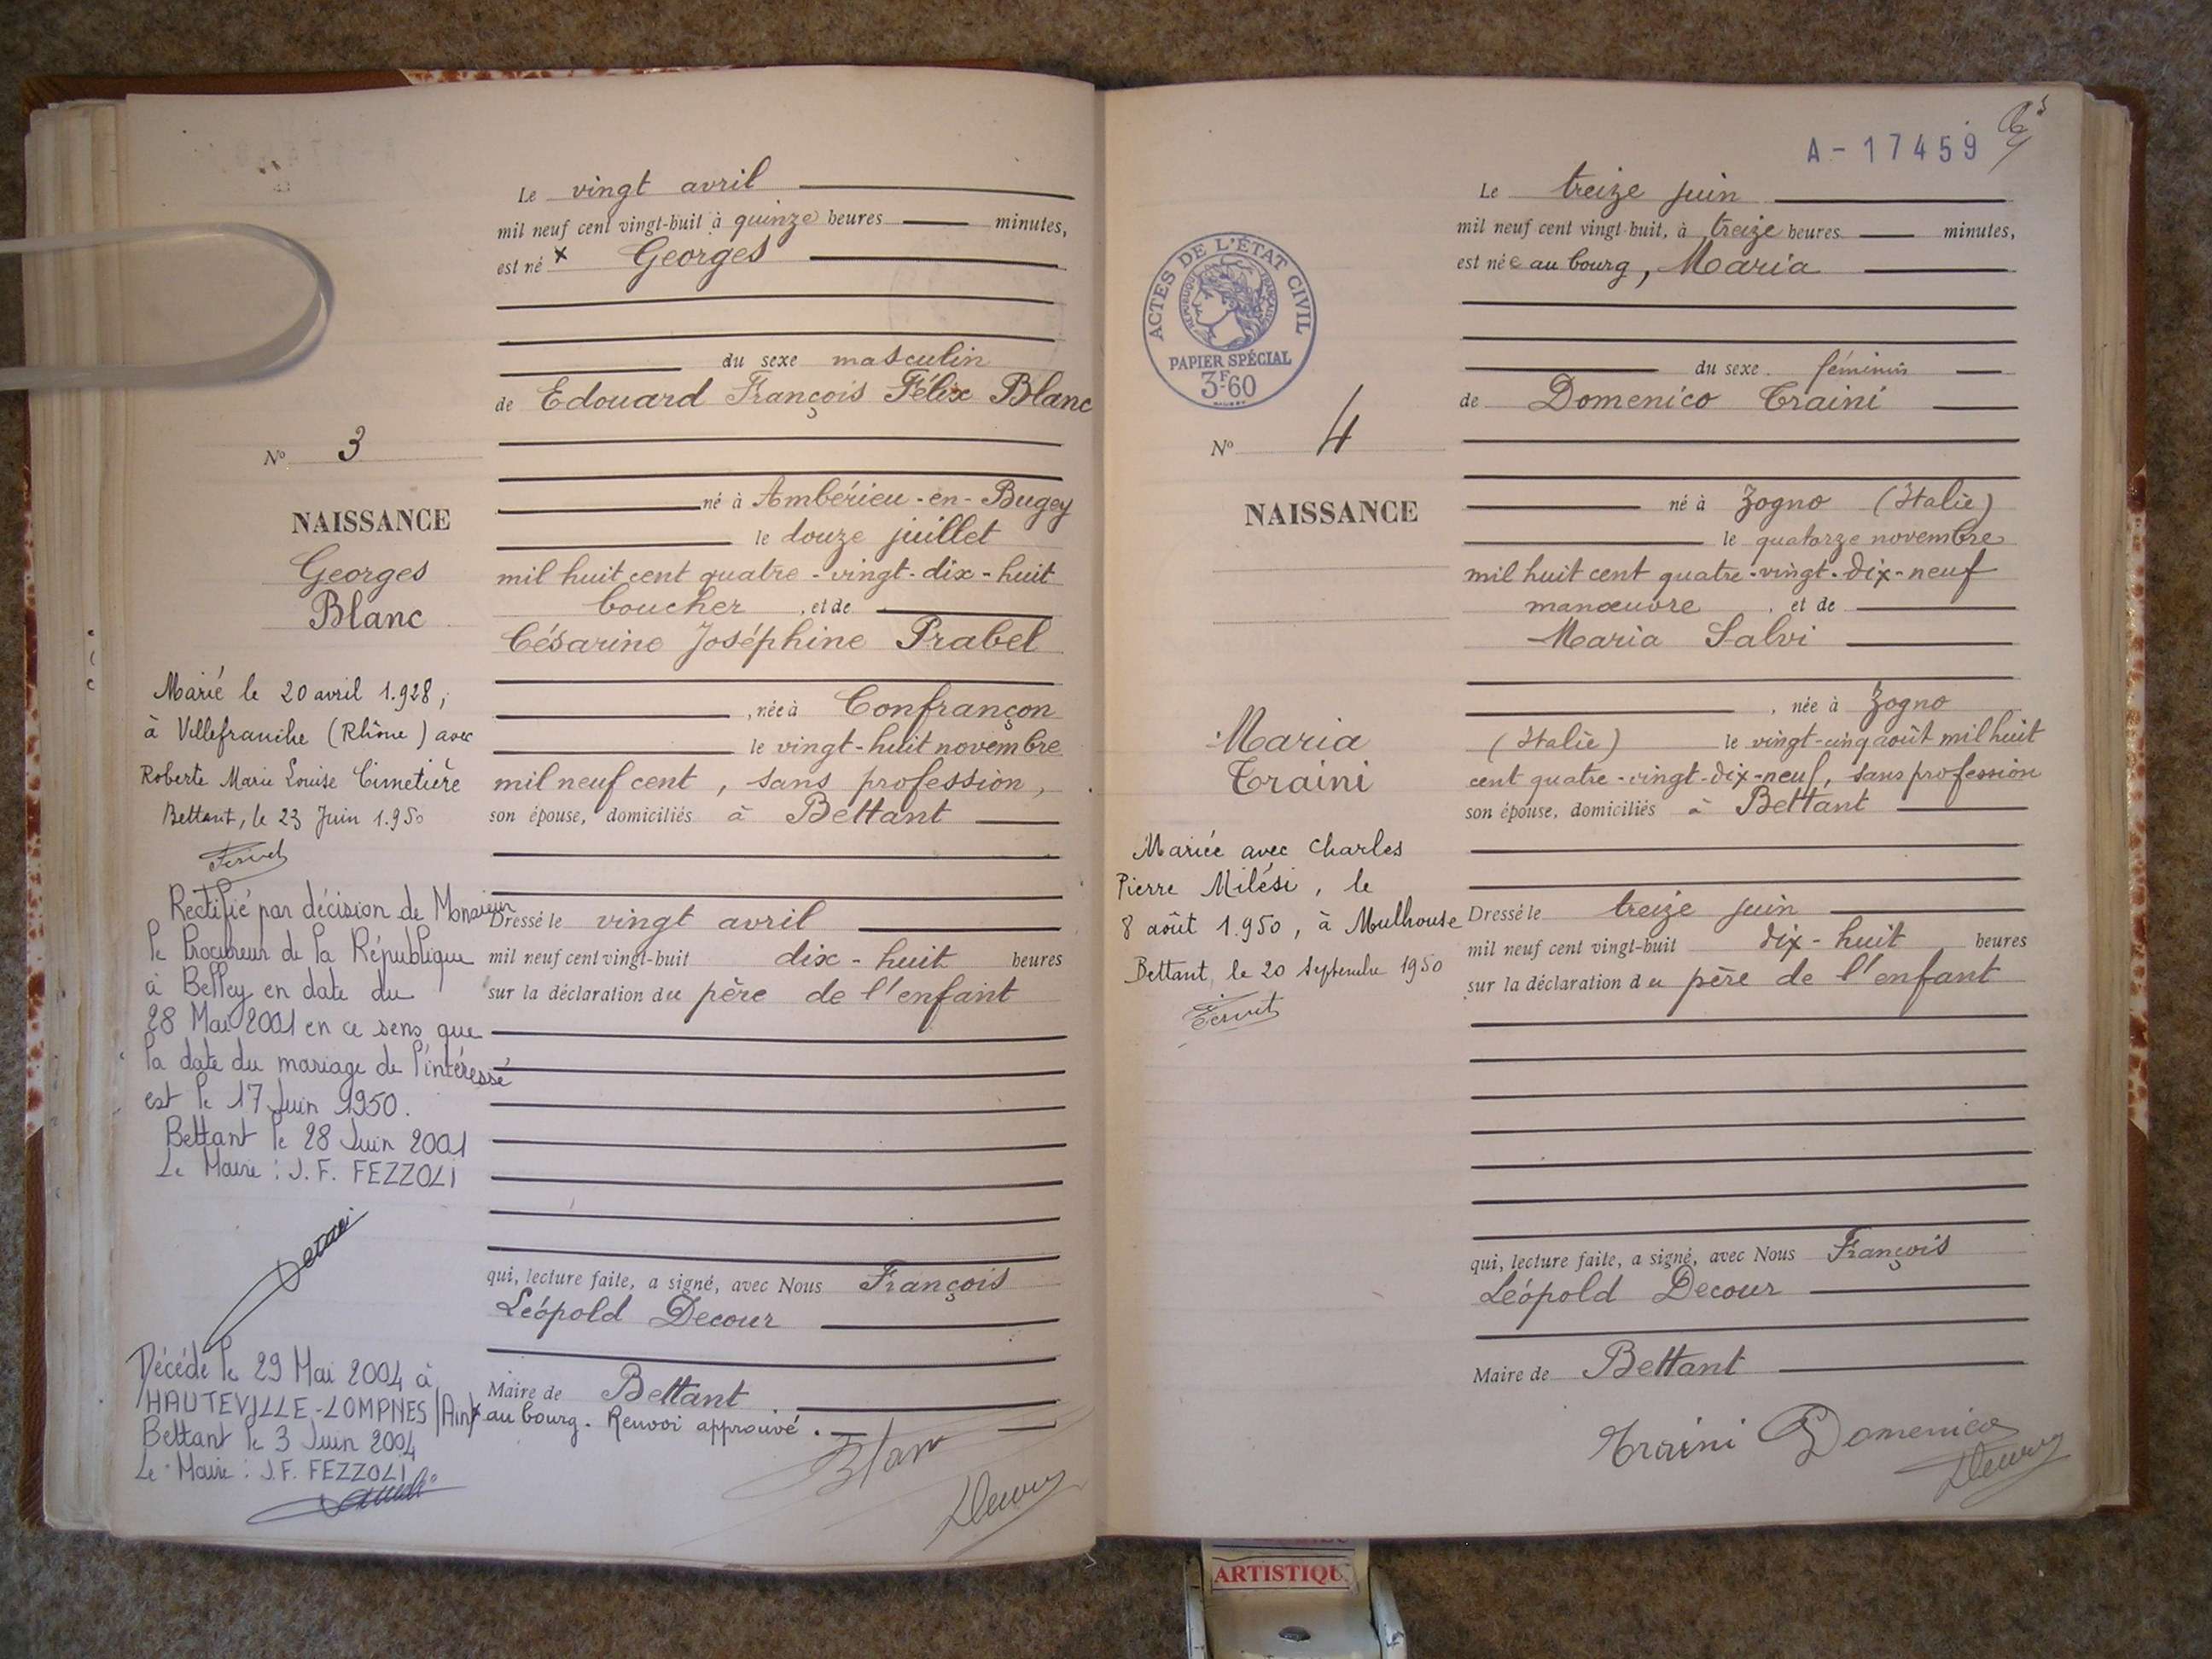 Le vingt avril
mil neuf cent vingt-huit à quinze heures minutes,
est né x Georges
du sexe masculin
de Edouard François Félix Blanc
né à Ambérieu-en-Bugey
le douze juillet
mil huit cent quatre-vingt-dix-huit
boucher, et de
Césarine Joséphine Prabel
, née à Confrançon
le vingt-huit novembre
mil neuf cent, sans profession,
son épouse, domiciliés à Bettant
Dressé le vingt avril
mil neuf cent vingt-huit dix-huit heures
sur la déclaration du père de l'enfant
qui, lecture faite, a signé, avec Nous François
Léopold Decour
Maire de Bettant
x au bourg. Renvoi approuvé.
Blanc
No 3
NAISSANCE
Georges
Blanc
Marié le 20 avril 1.928,
à Villefranche (Rhône) avec
Roberte Marie Louise Cimetière
Bettant, le 23 Juin 1.950
Rectifié par décision de Monsieur
le Procureur de la République
à Belley en date du
28 Mai 2001 en ce sens que
la date du mariage de l'intéressé
est le 17 Juin 1950.
Bettant le 28 Juin 2001
Le Maire : J.F. FEZZOLI
Décédé le 29 Mai 2004 à
HAUTEVILLE-LOMPNES (Ain)
Bettant le 3 Juin 2004
Le Maire : J.F. FEZZOLI
A-17459
Le treize juin
mil neuf cent vingt-huit, à treize heures minutes,
est née au bourg, Maria
du sexe féminin
de Domenico Traini
né à Zogno (Italie)
le quatorze novembre
mil huit cent quatre-vingt-dix-neuf
manœuvre, et de
Maria Salvi
, née à Zogno
(Italie) le vingt-cinq août mil huit
cent quatre-vingt-dix-neuf, sans profession
son épouse, domiciliés à Bettant
Dressé le treize juin
mil neuf cent vingt-huit dix-huit heures
sur la déclaration du père de l'enfant
qui, lecture faite, a signé, avec Nous François
Léopold Decour
Maire de Bettant
Traini Domenico
ACTES DE L'ÉTAT CIVIL
RÉPUBLIQUE FRANÇAISE
PAPIER SPÉCIAL
3F60
No 4
NAISSANCE
Maria
Traini
Mariée avec Charles
Pierre Milési, le
8 août 1.950, à Mulhouse
Bettant, le 20 Septembre 1950
ARTISTIQU